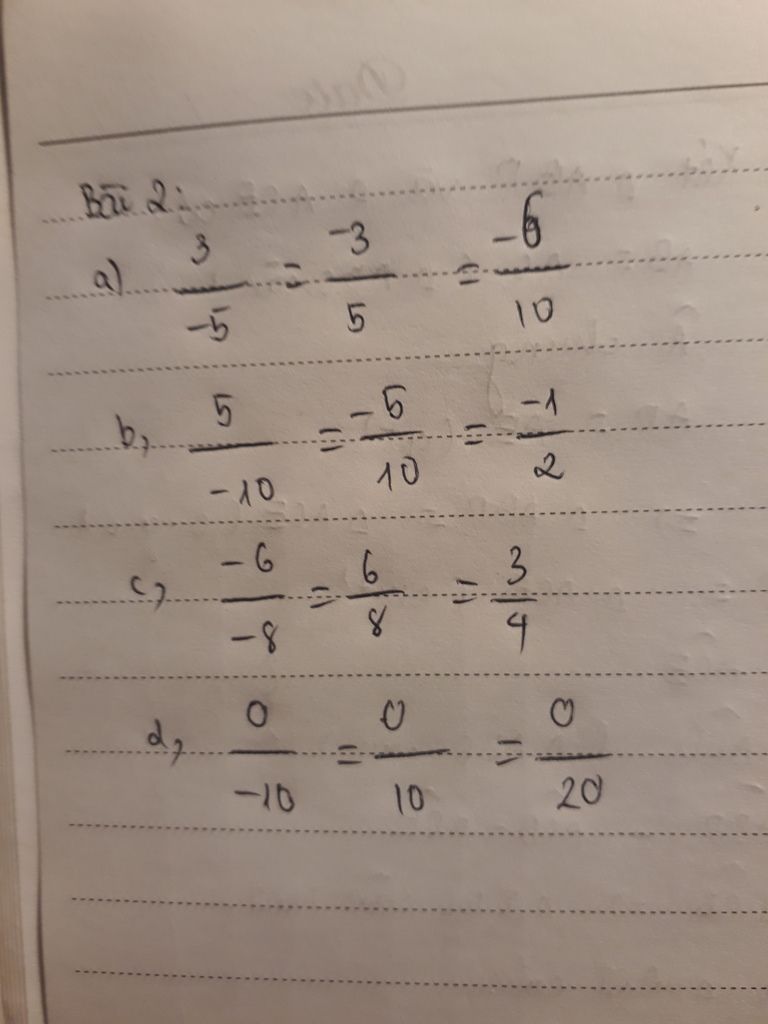 Bài 2:
a) 3/-5 = -3/5 = -6/10
b, 5/-10 = -5/10 = -1/2
c, -6/-8 = 6/8 = 3/4
d, 0/-10 = 0/10 = 0/20